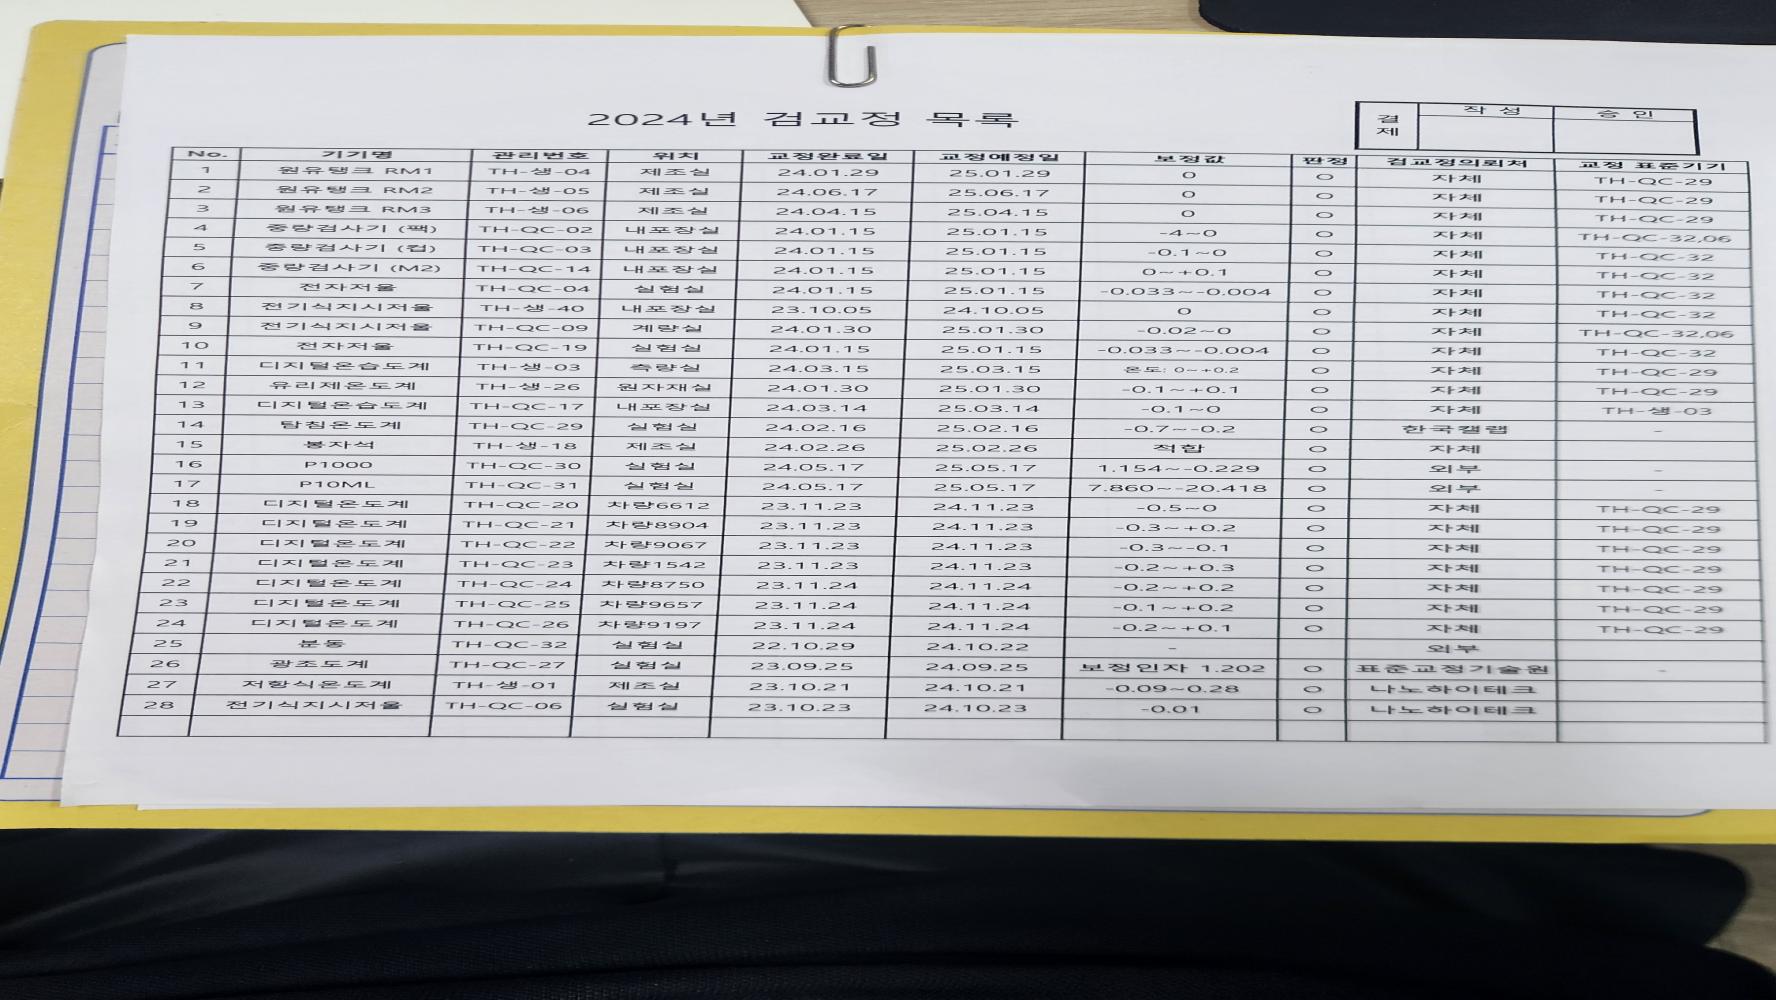 2024년 검교정 목록
결제 작 성 승 인
No. 기기명 관리번호 위치 교정완료일 교정예정일 보정값 판정 검교정의뢰처 교정 표준기기
1 원유탱크 RM1 TH-생-04 제조실 24.01.29 25.01.29 0 O 자체 TH-QC-29
2 원유탱크 RM2 TH-생-05 제조실 24.06.17 25.06.17 0 O 자체 TH-QC-29
3 원유탱크 RM3 TH-생-06 제조실 24.04.15 25.04.15 0 O 자체 TH-QC-29
4 중량검사기 (팩) TH-QC-02 내포장실 24.01.15 25.01.15 -4~0 O 자체 TH-QC-32,06
5 중량검사기 (컵) TH-QC-03 내포장실 24.01.15 25.01.15 -0.1~0 O 자체 TH-QC-32
6 중량검사기 (M2) TH-QC-14 내포장실 24.01.15 25.01.15 0~+0.1 O 자체 TH-QC-32
7 전자저울 TH-QC-04 실험실 24.01.15 25.01.15 -0.033~-0.004 O 자체 TH-QC-32
8 전기식지시저울 TH-생-40 내포장실 23.10.05 24.10.05 0 O 자체 TH-QC-32
9 전기식지시저울 TH-QC-09 계량실 24.01.30 25.01.30 -0.02~0 O 자체 TH-QC-32,06
10 전자저울 TH-QC-19 실험실 24.01.15 25.01.15 -0.033~-0.004 O 자체 TH-QC-32
11 디지털온습도계 TH-생-03 측량실 24.03.15 25.03.15 온도: 0~+0.2 O 자체 TH-QC-29
12 유리제온도계 TH-생-26 원자재실 24.01.30 25.01.30 -0.1~+0.1 O 자체 TH-QC-29
13 디지털온습도계 TH-QC-17 내포장실 24.03.14 25.03.14 -0.1~0 O 자체 TH-생-03
14 탐침온도계 TH-QC-29 실험실 24.02.16 25.02.16 -0.7~-0.2 O 한국캘랩 -
15 봉자석 TH-생-18 제조실 24.02.26 25.02.26 적합 O 자체
16 P1000 TH-QC-30 실험실 24.05.17 25.05.17 1.154~-0.229 O 외부 -
17 P10ML TH-QC-31 실험실 24.05.17 25.05.17 7.860~-20.418 O 외부 -
18 디지털온도계 TH-QC-20 차량6612 23.11.23 24.11.23 -0.5~0 O 자체 TH-QC-29
19 디지털온도계 TH-QC-21 차량8904 23.11.23 24.11.23 -0.3~+0.2 O 자체 TH-QC-29
20 디지털온도계 TH-QC-22 차량9067 23.11.23 24.11.23 -0.3~-0.1 O 자체 TH-QC-29
21 디지털온도계 TH-QC-23 차량1542 23.11.23 24.11.23 -0.2~+0.3 O 자체 TH-QC-29
22 디지털온도계 TH-QC-24 차량8750 23.11.24 24.11.24 -0.2~+0.2 O 자체 TH-QC-29
23 디지털온도계 TH-QC-25 차량9657 23.11.24 24.11.24 -0.1~+0.2 O 자체 TH-QC-29
24 디지털온도계 TH-QC-26 차량9197 23.11.24 24.11.24 -0.2~+0.1 O 자체 TH-QC-29
25 분동 TH-QC-32 실험실 22.10.29 24.10.22 - 외부
26 광조도계 TH-QC-27 실험실 23.09.25 24.09.25 보정인자 1.202 O 표준교정기술원 -
27 저항식온도계 TH-생-01 제조실 23.10.21 24.10.21 -0.09~0.28 O 나노하이테크
28 전기식지시저울 TH-QC-06 실험실 23.10.23 24.10.23 -0.01 O 나노하이테크